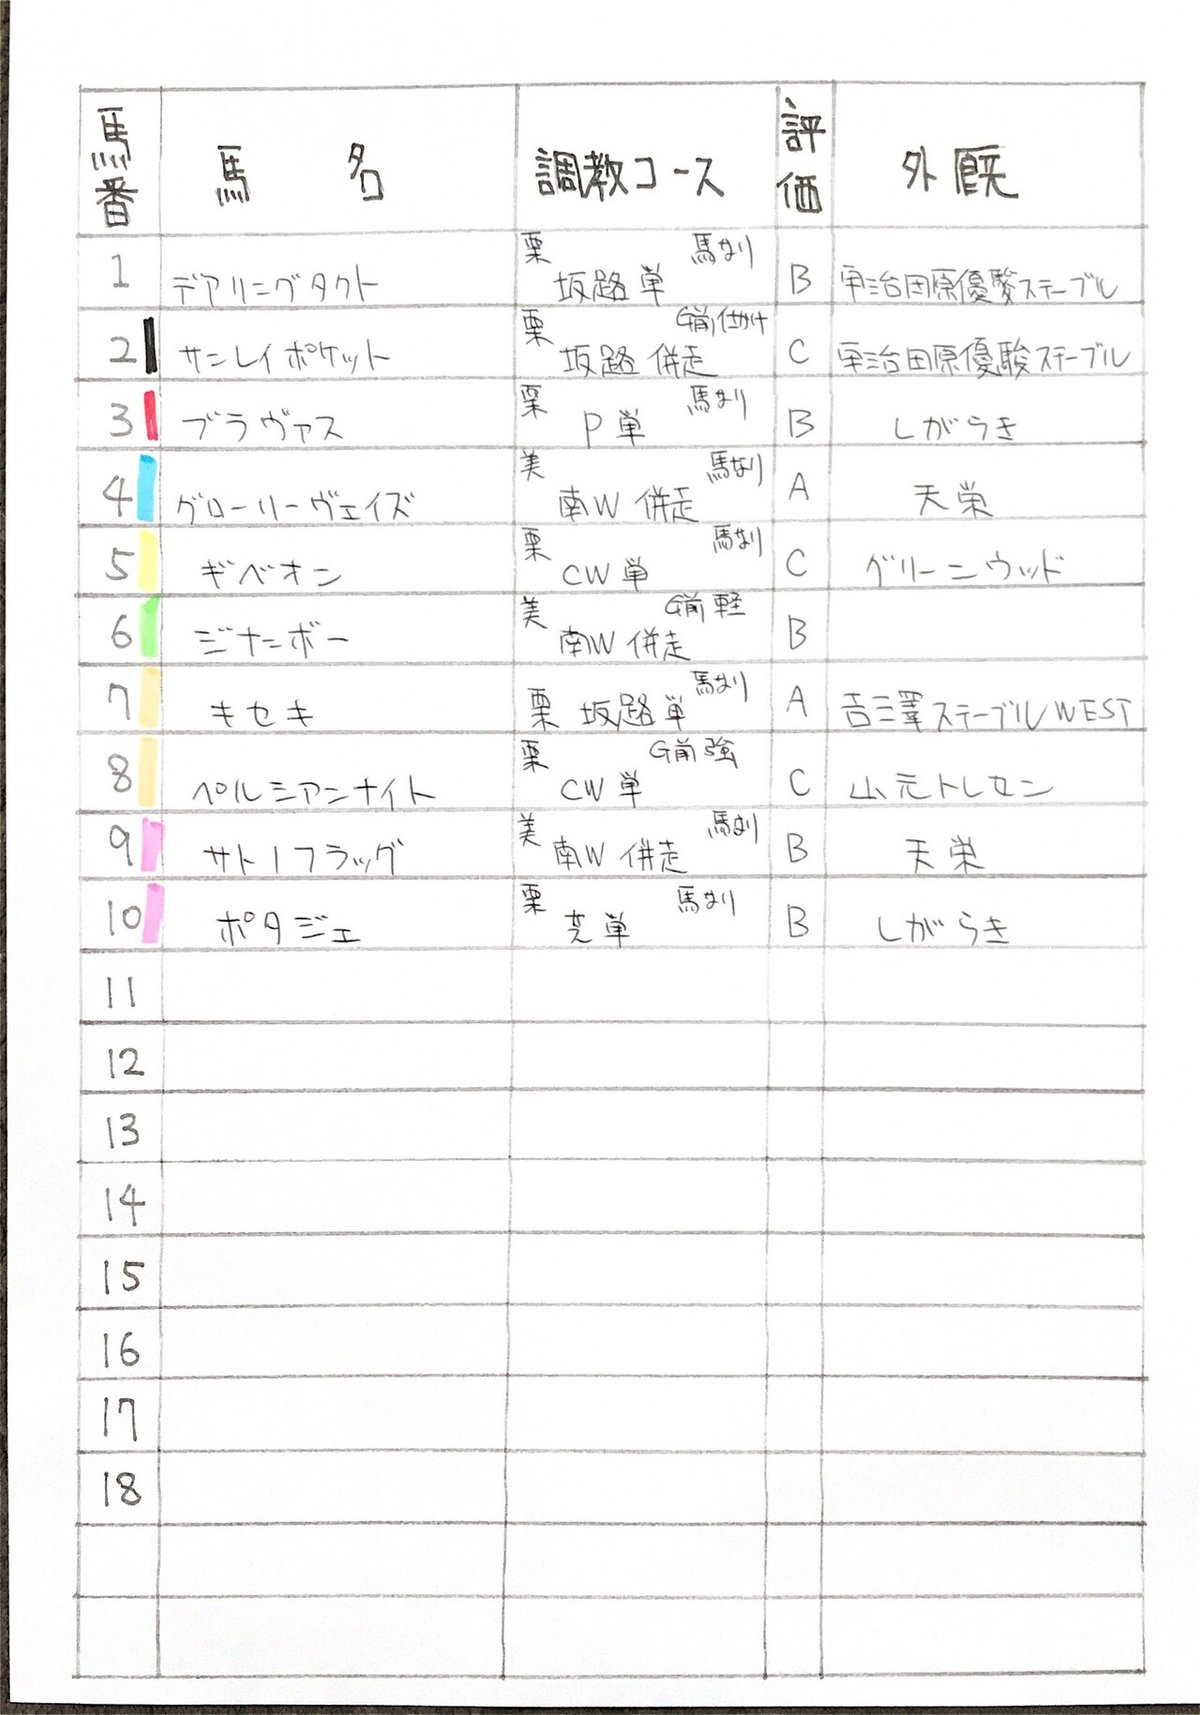 馬番 馬名 調教コース 評価 外厩
1 デアリングタクト 栗 坂路単 馬なり B 宇治田原優駿ステーブル
2 サンレイポケット 栗 坂路併走 G前仕掛け C 宇治田原優駿ステーブル
3 ブラヴァス 栗 P単 馬なり B しがらき
4 グローリーヴェイズ 美 南W併走 馬なり A 天栄
5 ギベオン 栗 CW単 馬なり C グリーンウッド
6 ジナンボー 美 南W併走 G前軽 B
7 キセキ 栗 坂路単 馬なり A 吉澤ステーブルWEST
8 ペルシアンナイト 栗 CW単 G前強 C 山元トレセン
9 サトノフラッグ 美 南W併走 馬なり B 天栄
10 ポタジェ 栗 芝単 馬なり B しがらき
11
12
13
14
15
16
17
18